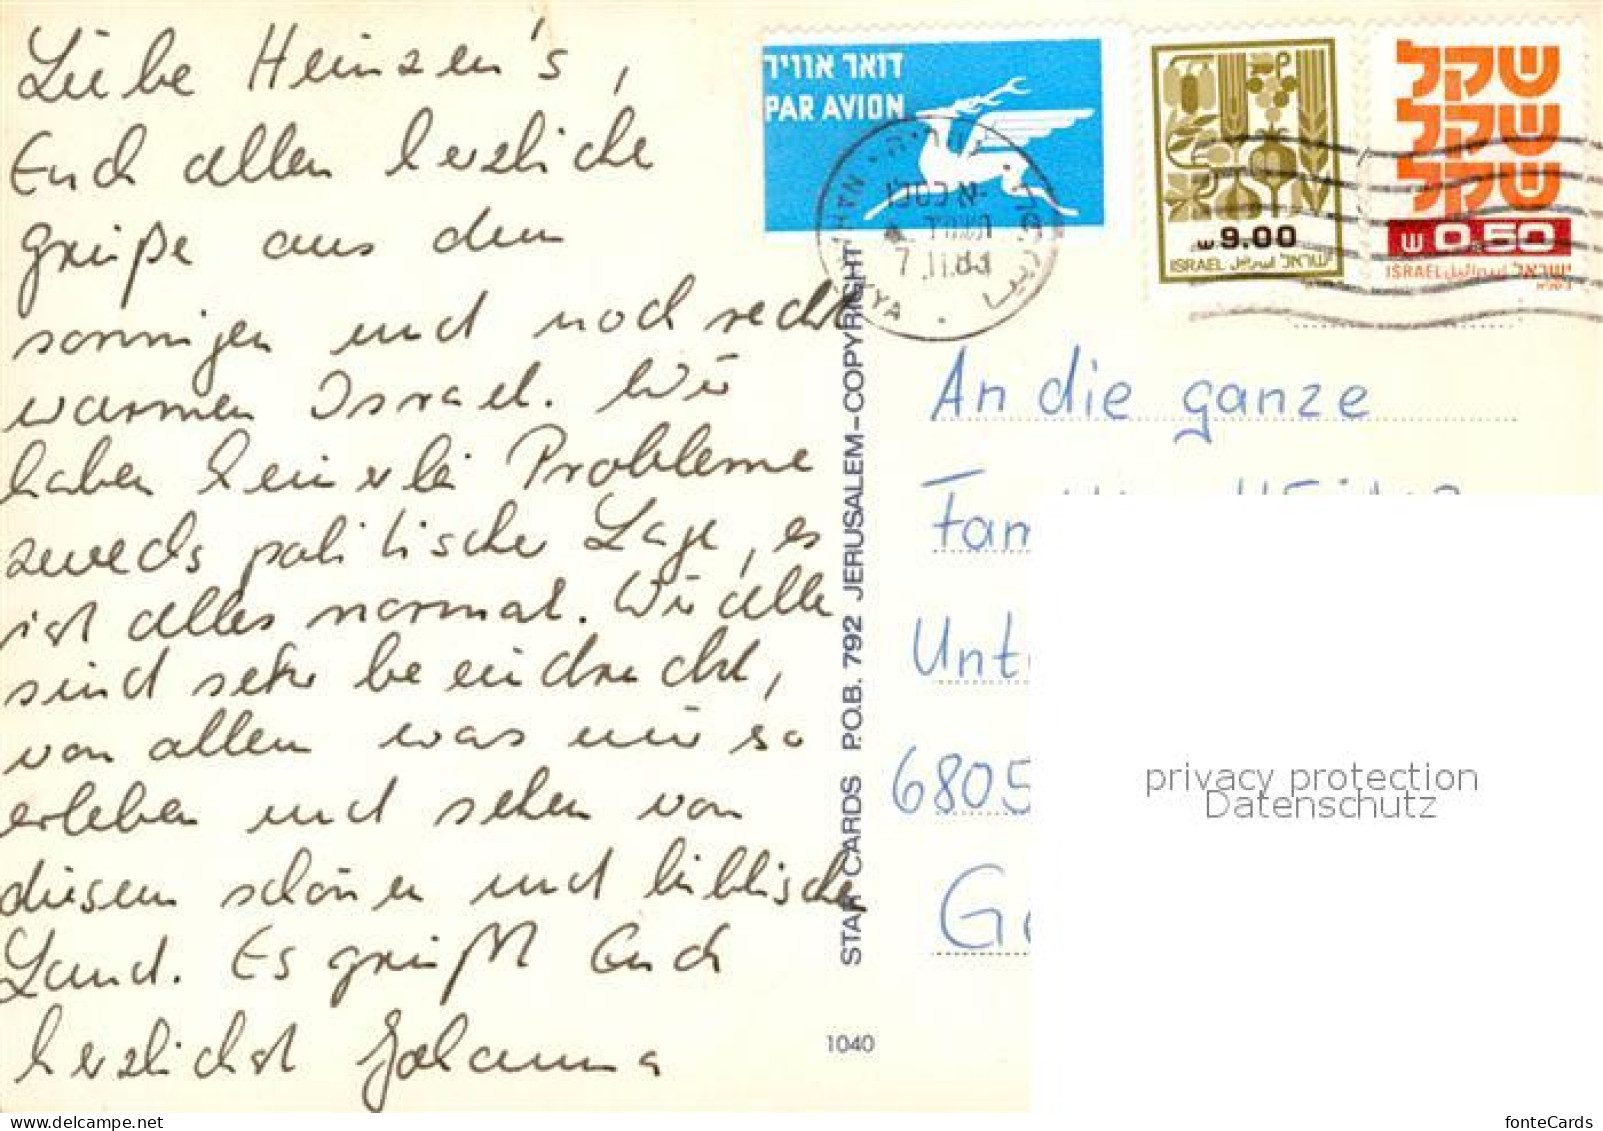 Liebe Heinzen's,
Euch allen herzliche
Grüße aus dem
sonnigen und noch recht
warmen Israel. Wir
haben keinerlei Probleme
zwecks politischer Lage, es
ist alles normal. Wir alle
sind sehr beeindruckt,
von allem was wir so
erleben und sehen von
diesem schönen und biblischen
Land. Es grüßt Euch
herzlichst Johanna
דואר אוויר
PAR AVION
7.11.83
₪ 9.00
ISRAEL اسرائيل ישראל
שקל
שקל
שקל
₪ 0.50
ISRAEL اسرائيل ישראל
STAR CARDS P.O.B. 792 JERUSALEM-COPYRIGHT
1040
An die ganze
Fam
Unt
6805
Ge
privacy protection
Datenschutz
www.delcampe.net
fonteCards